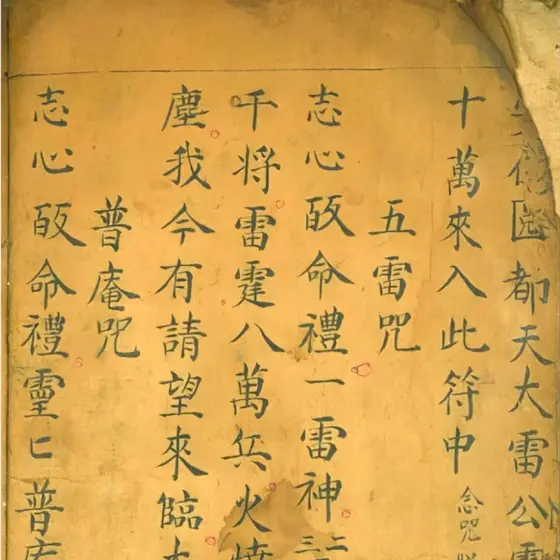 都天大雷公
十萬來入此符中 念咒
五雷咒
志心皈命禮一雷神
千将雷霆八萬兵火
塵我今有請望來臨
普庵咒
志心皈命禮靈匕普